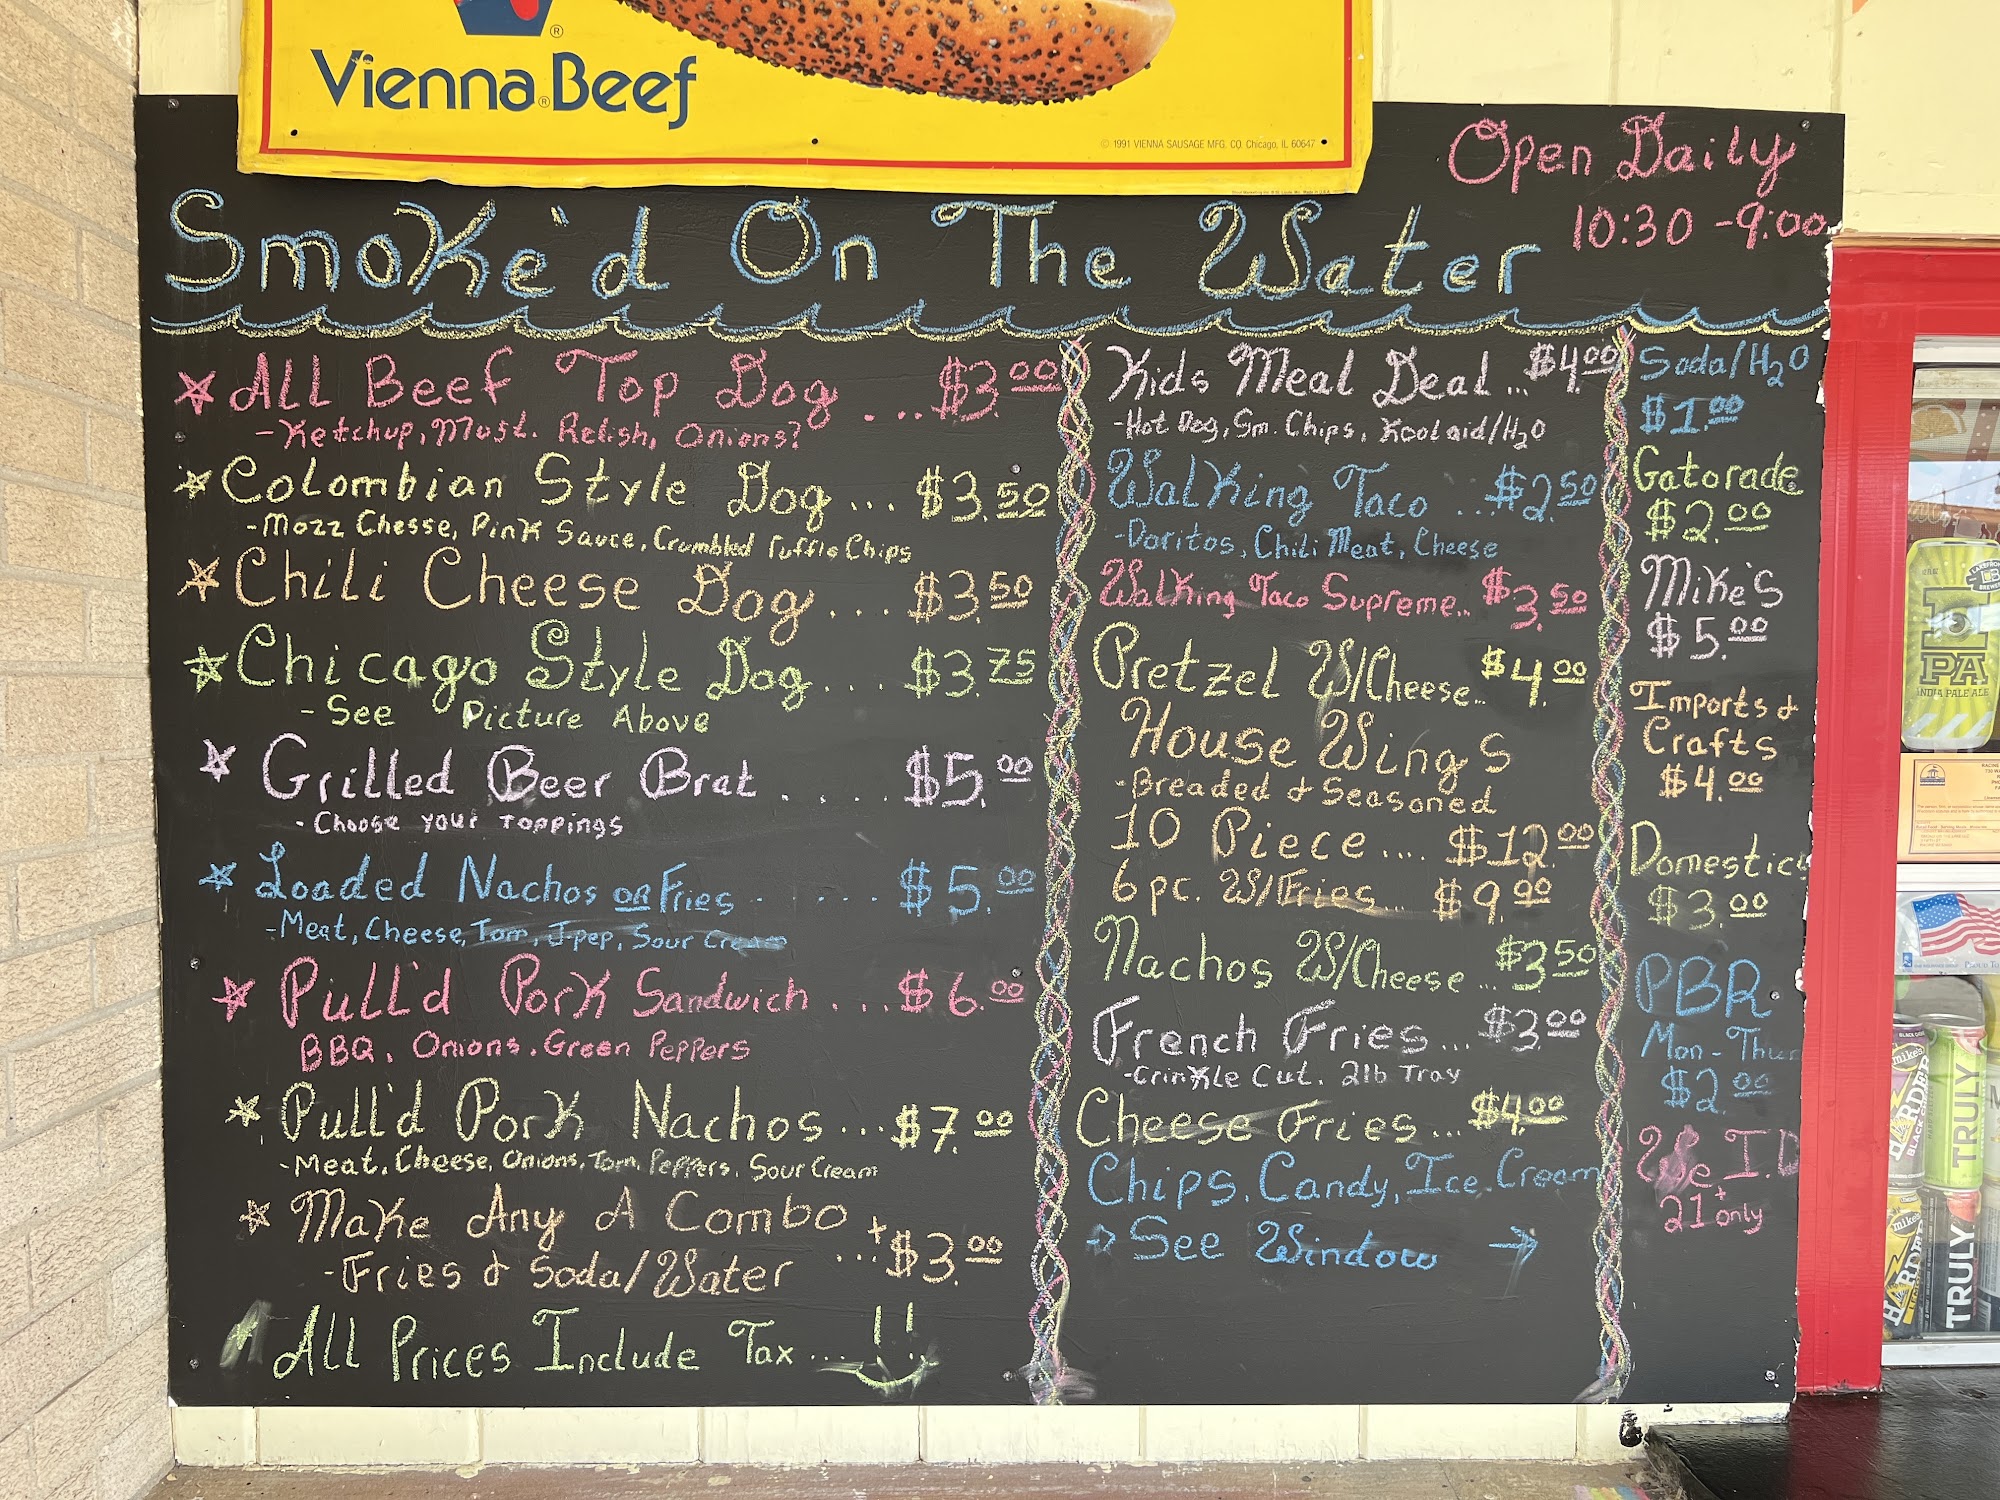 Vienna® Beef
®
© 1991 VIENNA SAUSAGE MFG. CO. Chicago, IL 60647
Open Daily
10:30 - 9:00
Smoke'd On The Water
All Beef Top Dog ... $3.00
- Ketchup, Must. Relish, Onions?
Colombian Style Dog ... $3.50
- Mozz Chesse, Pink Sauce, Crumbled Ruffle Chips
Chili Cheese Dog ... $3.50
Chicago Style Dog ... $3.75
- See Picture Above
Grilled Beer Brat ..... $5.00
- Choose your toppings
Loaded Nachos OR Fries ..... $5.00
- Meat, Cheese, Tom, J-pep, Sour Cream
Pull'd Pork Sandwich ... $6.00
BBQ, Onions, Green Peppers
Pull'd Pork Nachos ... $7.00
- Meat, Cheese, Onions, Tom, Peppers, Sour Cream
Make Any A Combo
- Fries & Soda/Water ... +$3.00
All Prices Include Tax ...
Kids Meal Deal ... $4.00
- Hot Dog, Sm. Chips, Koolaid/H2O
Walking Taco ... $2.50
- Doritos, Chili Meat, Cheese
Walking Taco Supreme.. $3.50
Pretzel W/Cheese... $4.00
House Wings
- Breaded & Seasoned
10 Piece .... $12.00
6 pc. W/Fries... $9.00
Nachos W/Cheese ... $3.50
French Fries ... $3.00
- Crinkle Cut. 2lb Tray
Cheese Fries ... $4.00
Chips, Candy, Ice Cream
→ See Window →
Soda/H2O
$1.00
Gatorade
$2.00
Mike's
$5.00
Imports &
Crafts
$4.00
Domestics
$3.00
PBR
Mon - Thur
$2.00
We I.D
21+ only
LAKEFRONT
IPA
INDIA PALE ALE
mike's
HARDER
TRULY
mike's
HARDER
TRULY